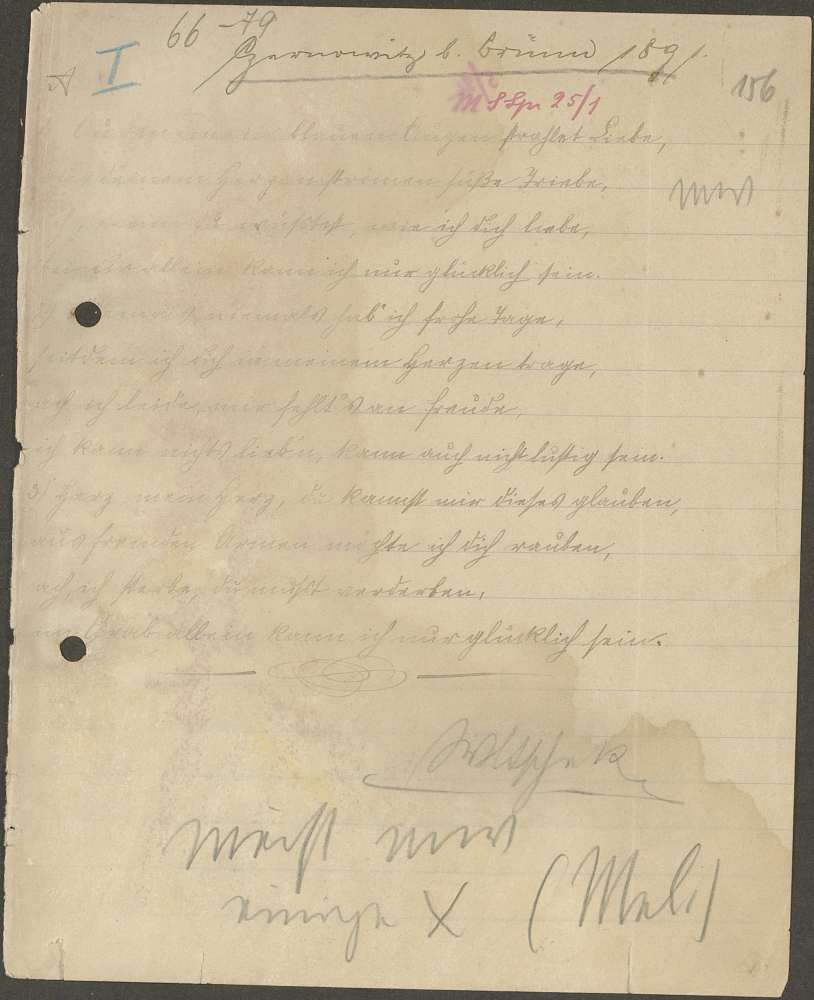 66-79
Czernowitz b. Brünn 1891.
A I
156
25/1
Aus deinen blauen Augen strahlet Liebe,
aus deinem Herzen strömen süße Triebe,
wenn du wüßtest, wie ich dich liebe,
allein kann ich nur glücklich sein.
niemals hab' ich frohe Tage,
seitdem ich dich in meinem Herzen trage,
ach ich leide, mir fehlt's an Freude,
ich kann nichts lieb'n, kann auch nicht lustig sein.
3) Herz mein Herz, du kannst mir dieses glauben,
aus fremden Armen möchte ich dich rauben,
ach, ich sterbe, du mußt verderben,
im Grab allein kann ich nur glücklich sein.
meist
einige X (Mel.)